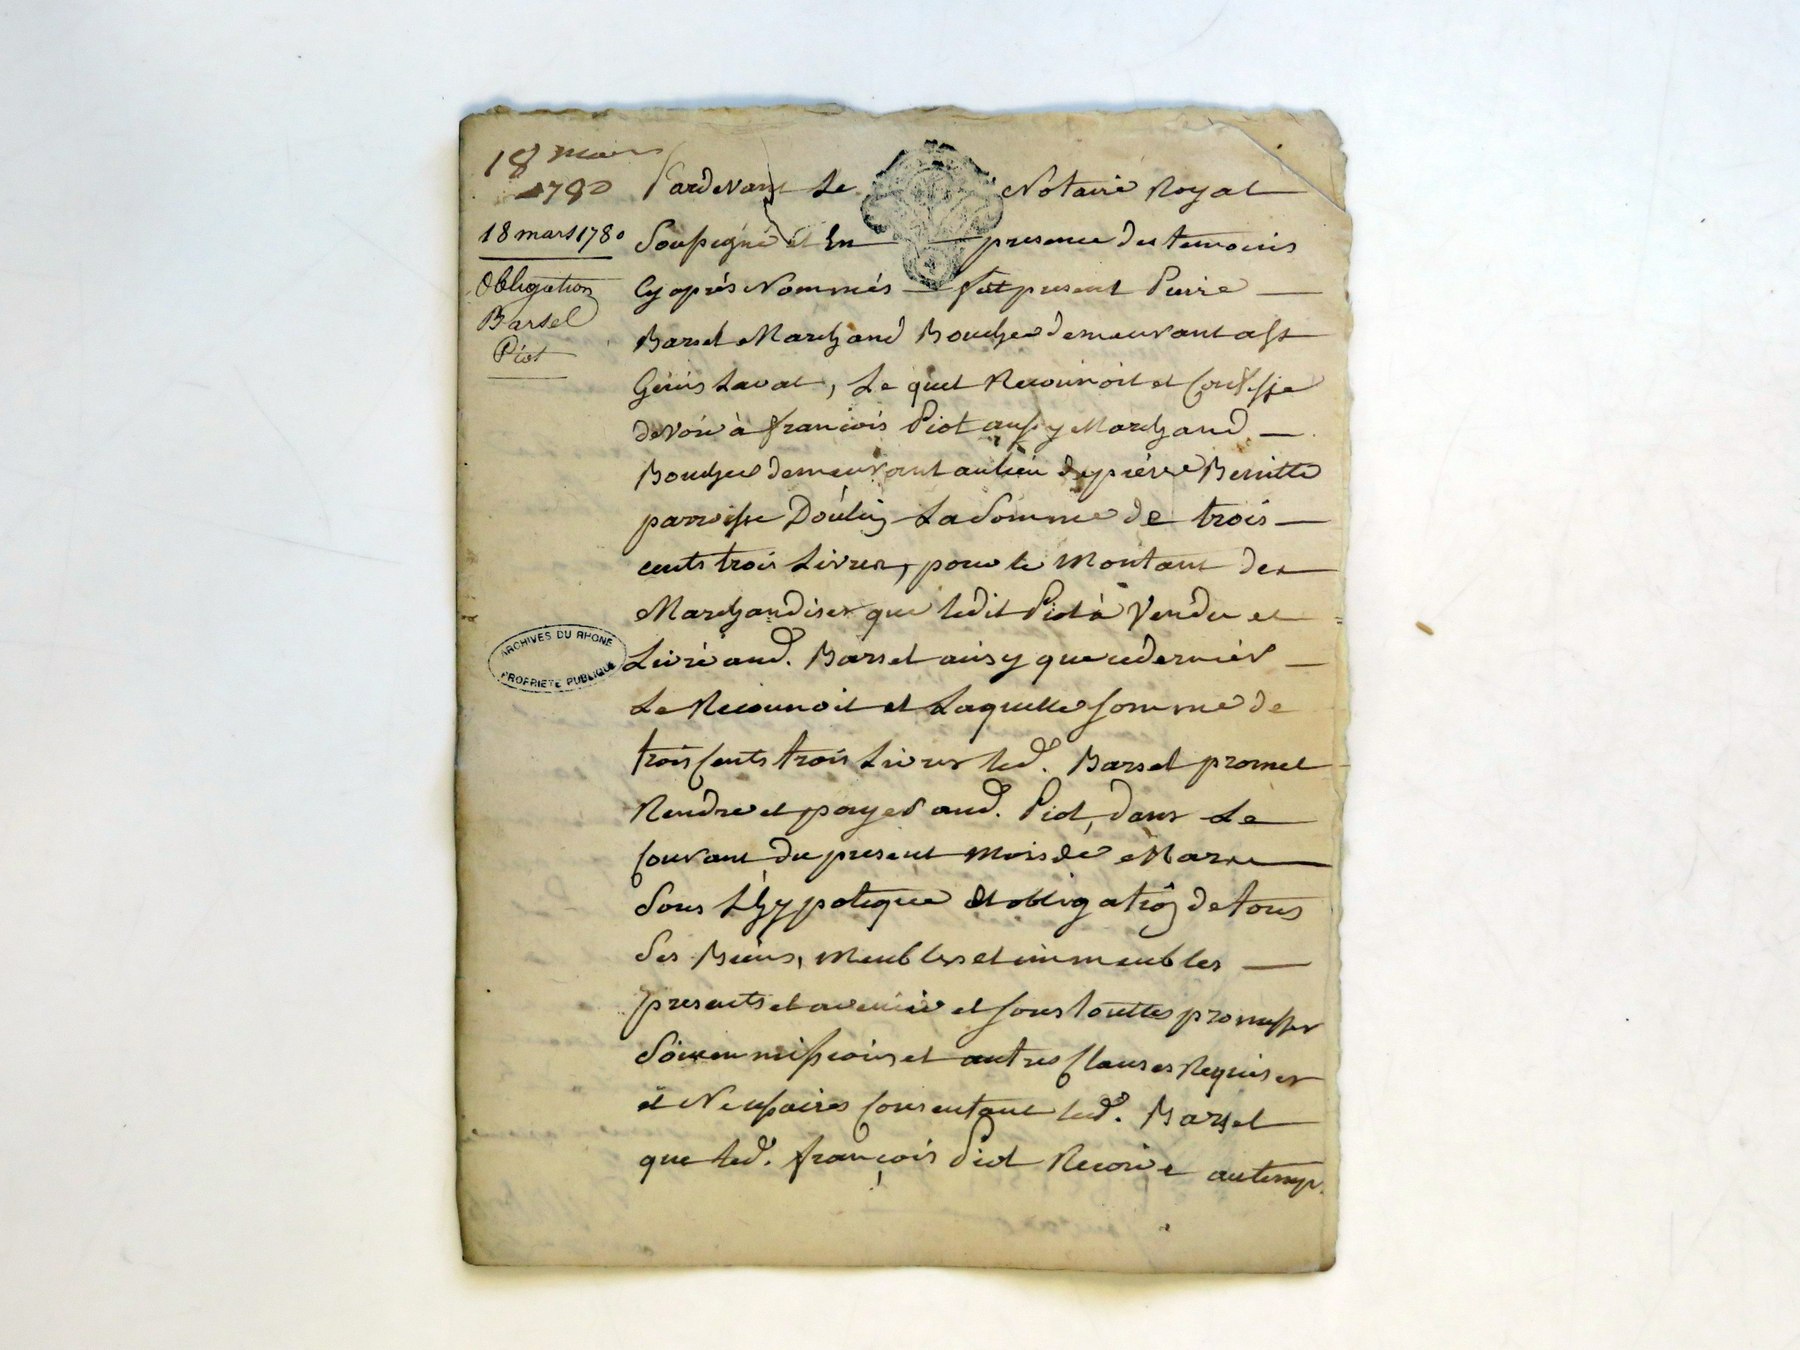 18 mars
1780
18 mars 1780
Obligation
Barsel
Piot
ARCHIVES DU RHONE
PROPRIETE PUBLIQUE
Pardevant Le Notaire Royal
Soussigné et En presence des temoins
Cy après Nommés fut present Pierre
Barsel Marchand Boucher demeurant a st
Genis Laval, Le quel Reconnoit et Confesse
devoir à françois Piot aussy Marchand
Boucher demeurant au lieu de pierre Benitte
parroisse Doulins La Somme de trois
cents trois Livres, pour le Montant des
Marchandises que ledit Piot à Vendu et
Livré aud. Barsel ainsy que ce dernier
Le Reconnoit et Laquelle somme de
trois Cents trois Livres led. Barsel promet
Rendre et payer aud. Piot, dans Le
Courant du present mois de Mars
Sous L'hypoteque et obligatiõn de tous
Ses Biens, meubles et immeubles
presents et avenir et sous touttes promesses
Soummissions et autres Clauses Requises
et Necessaires Consentant led. Barsel
que led. françois Piot Recoive au temps